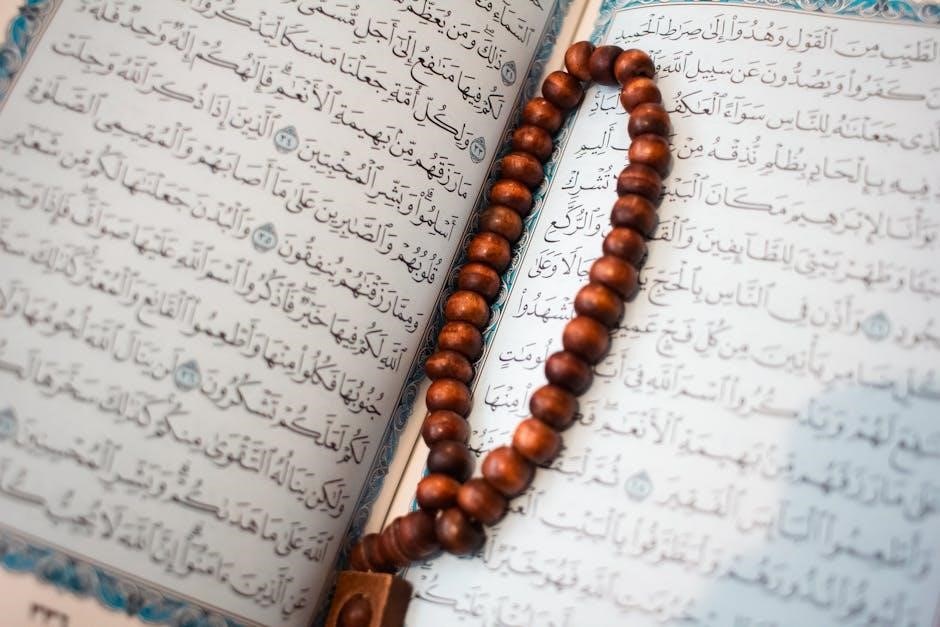 ٱلطَّيِّبِ مِنَ ٱلْقَوْلِ وَهُدُوٓا۟ إِلَىٰ صِرَٰطِ ٱلْحَمِيدِ
كَفَرُوا۟ وَيَصُدُّونَ عَن سَبِيلِ ٱللَّهِ
جَعَلْنَٰهُ لِلنَّاسِ سَوَآءً ٱلْعَٰكِفُ
فِيهِ بِإِلْحَادٍۭ بِظُلْمٍ نُّذِقْهُ مِنْ أَلِيمٍ
لِإِبْرَٰهِيمَ مَكَانَ ٱلْبَيْتِ تُشْرِكْ
وَطَهِّرْ بَيْتِىَ لِلطَّآئِفِينَ وَٱلرُّكَّعِ
٢٦ وَأَذِّن فِى ٱلنَّاسِ بِٱلْحَجِّ وَعَلَىٰ
ضَامِرٍ يَأْتِينَ مِن كُلِّ فَجٍّ
لَهُمْ وَيَذْكُرُوا۟ ٱسْمَ ٱللَّهِ فِىٓ
مَا رَزَقَهُم مِّنۢ بَهِيمَةِ ٱلْأَنْعَٰمِ مِنْهَا
وَأَطْعِمُوا۟ ٱلْبَآئِسَ ٱلْفَقِيرَ ٢٨ ثُمَّ
نُذُورَهُمْ وَلْيَطَّوَّفُوا۟ بِٱلْبَيْتِ
ٱللَّهِ فَهُوَ خَيْرٌ
عَلَيْكُمْ
ٱلسَّمَآءِ
ذَٰلِكَ وَمَن يُعَظِّمْ
لَكُمْ فِيهَا مَنَٰفِعُ إِلَىٰٓ أَجَلٍ مُّسَمًّى
٣٣ وَلِكُلِّ أُمَّةٍ جَعَلْنَا مَنسَكًا لِّيَذْكُرُوا۟
مَا رَزَقَهُم مِّنۢ بَهِيمَةِ ٱلْأَنْعَٰمِ فَإِلَٰهُكُمْ إِلَٰهٌ وَٰحِدٌ
أَسْلِمُوا۟ وَبَشِّرِ ٱلْمُخْبِتِينَ ٣٤ ٱلَّذِينَ إِذَا ذُكِرَ ٱللَّهُ وَجِلَتْ
قُلُوبُهُمْ وَٱلصَّٰبِرِينَ عَلَىٰ مَآ أَصَابَهُمْ وَٱلْمُقِيمِى ٱلصَّلَوٰةِ
وَمِمَّا رَزَقْنَٰهُمْ يُنفِقُونَ ٣٥ وَٱلْبُدْنَ جَعَلْنَٰهَا لَكُم مِّن شَعَٰٓئِرِ
ٱللَّهِ لَكُمْ فِيهَا خَيْرٌ فَٱذْكُرُوا۟ ٱسْمَ ٱللَّهِ عَلَيْهَا صَوَآفَّ فَإِذَا وَجَبَتْ
جُنُوبُهَا فَكُلُوا۟ مِنْهَا وَأَطْعِمُوا۟ ٱلْقَانِعَ وَٱلْمُعْتَرَّ كَذَٰلِكَ
لَكُمْ لَعَلَّكُمْ تَشْكُرُونَ ٣٦ لَن يَنَالَ ٱللَّهَ لُحُومُهَا وَلَا
وَلَٰكِن يَنَالُهُ ٱلتَّقْوَىٰ مِنكُمْ كَذَٰلِكَ سَخَّرَهَا لَكُمْ
ٱللَّهَ عَلَىٰ مَا هَدَىٰكُمْ وَبَشِّرِ ٱلْمُحْسِنِينَ
عَنِ ٱلَّذِينَ ءَامَنُوٓا۟ إِنَّ ٱللَّهَ لَا يُحِبُّ كُلَّ
٣٣٦